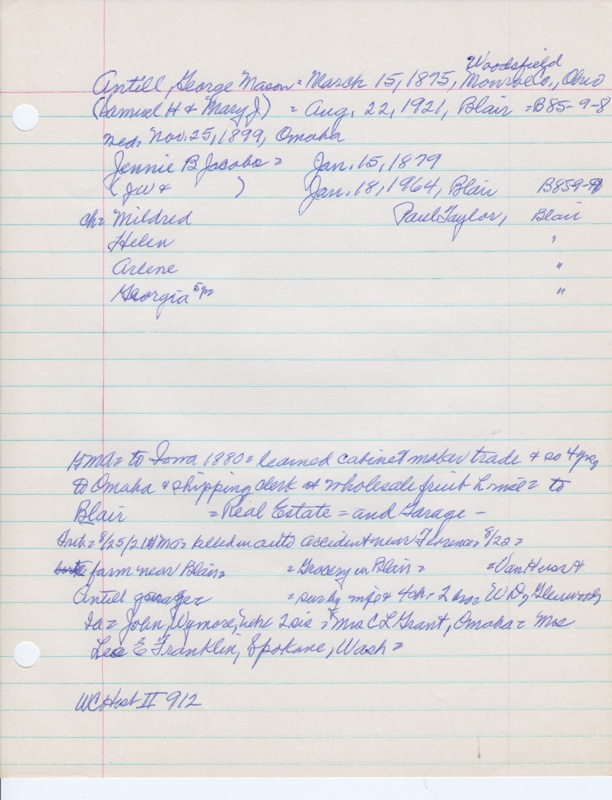 Woodsfield
Antill, George Mason = March 15, 1875, Monroe Co., Ohio
(Samuel H & Mary J.) = Aug. 22, 1921, Blair = B85-9-8
med. Nov. 25, 1899, Omaha
Jennie B Jacobs = Jan. 15, 1879
(J W & ) Jan. 18, 1964, Blair B859-
ch = Mildred Paul Taylor, Blair
Helen "
Arlene "
Georgia 5 yr "
to Iowa 1880 = learned cabinet maker trade & so 4 yrs,
to Omaha & shipping clerk at wholesale fruit = to
Blair = Real Estate = and Garage -
Trib = 8/25/21 = killed in auto accident near Florence = 8/22 =
farm near Blair = = Grocery in Blair = = Van Horst
Antill garage = = surv by wife & 4 ch = 2 bro = W D, Glenwood,
Ia = John, Wymore, Neb 2 sis = Mrs C L Grant, Omaha = Mrs
Leo E Franklin, Spokane, Wash =
WC Hist II 912